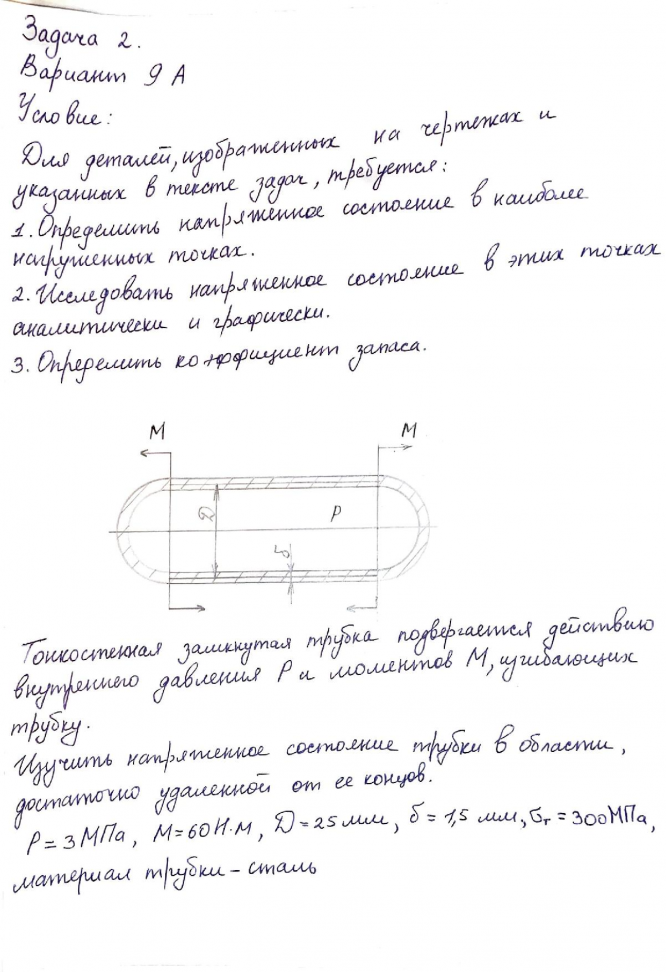 Задача 2.
Вариант 9 А
Условие:
Для деталей, изображенных на чертежах и
указанных в тексте задач, требуется:
1. Определить напряженное состояние в наиболее
нагруженных точках.
2. Исследовать напряженное состояние в этих точках
аналитически и графически.
3. Определить коэффициент запаса.
M M
D P
δ
Тонкостенная замкнутая трубка подвергается действию
внутреннего давления P и моментов M, изгибающих
трубку.
Изучить напряженное состояние трубки в области,
достаточно удаленной от ее концов.
P = 3 МПа, M = 60 Н·м, D = 25 мм, δ = 1,5 мм, σт = 300 МПа,
материал трубки – сталь